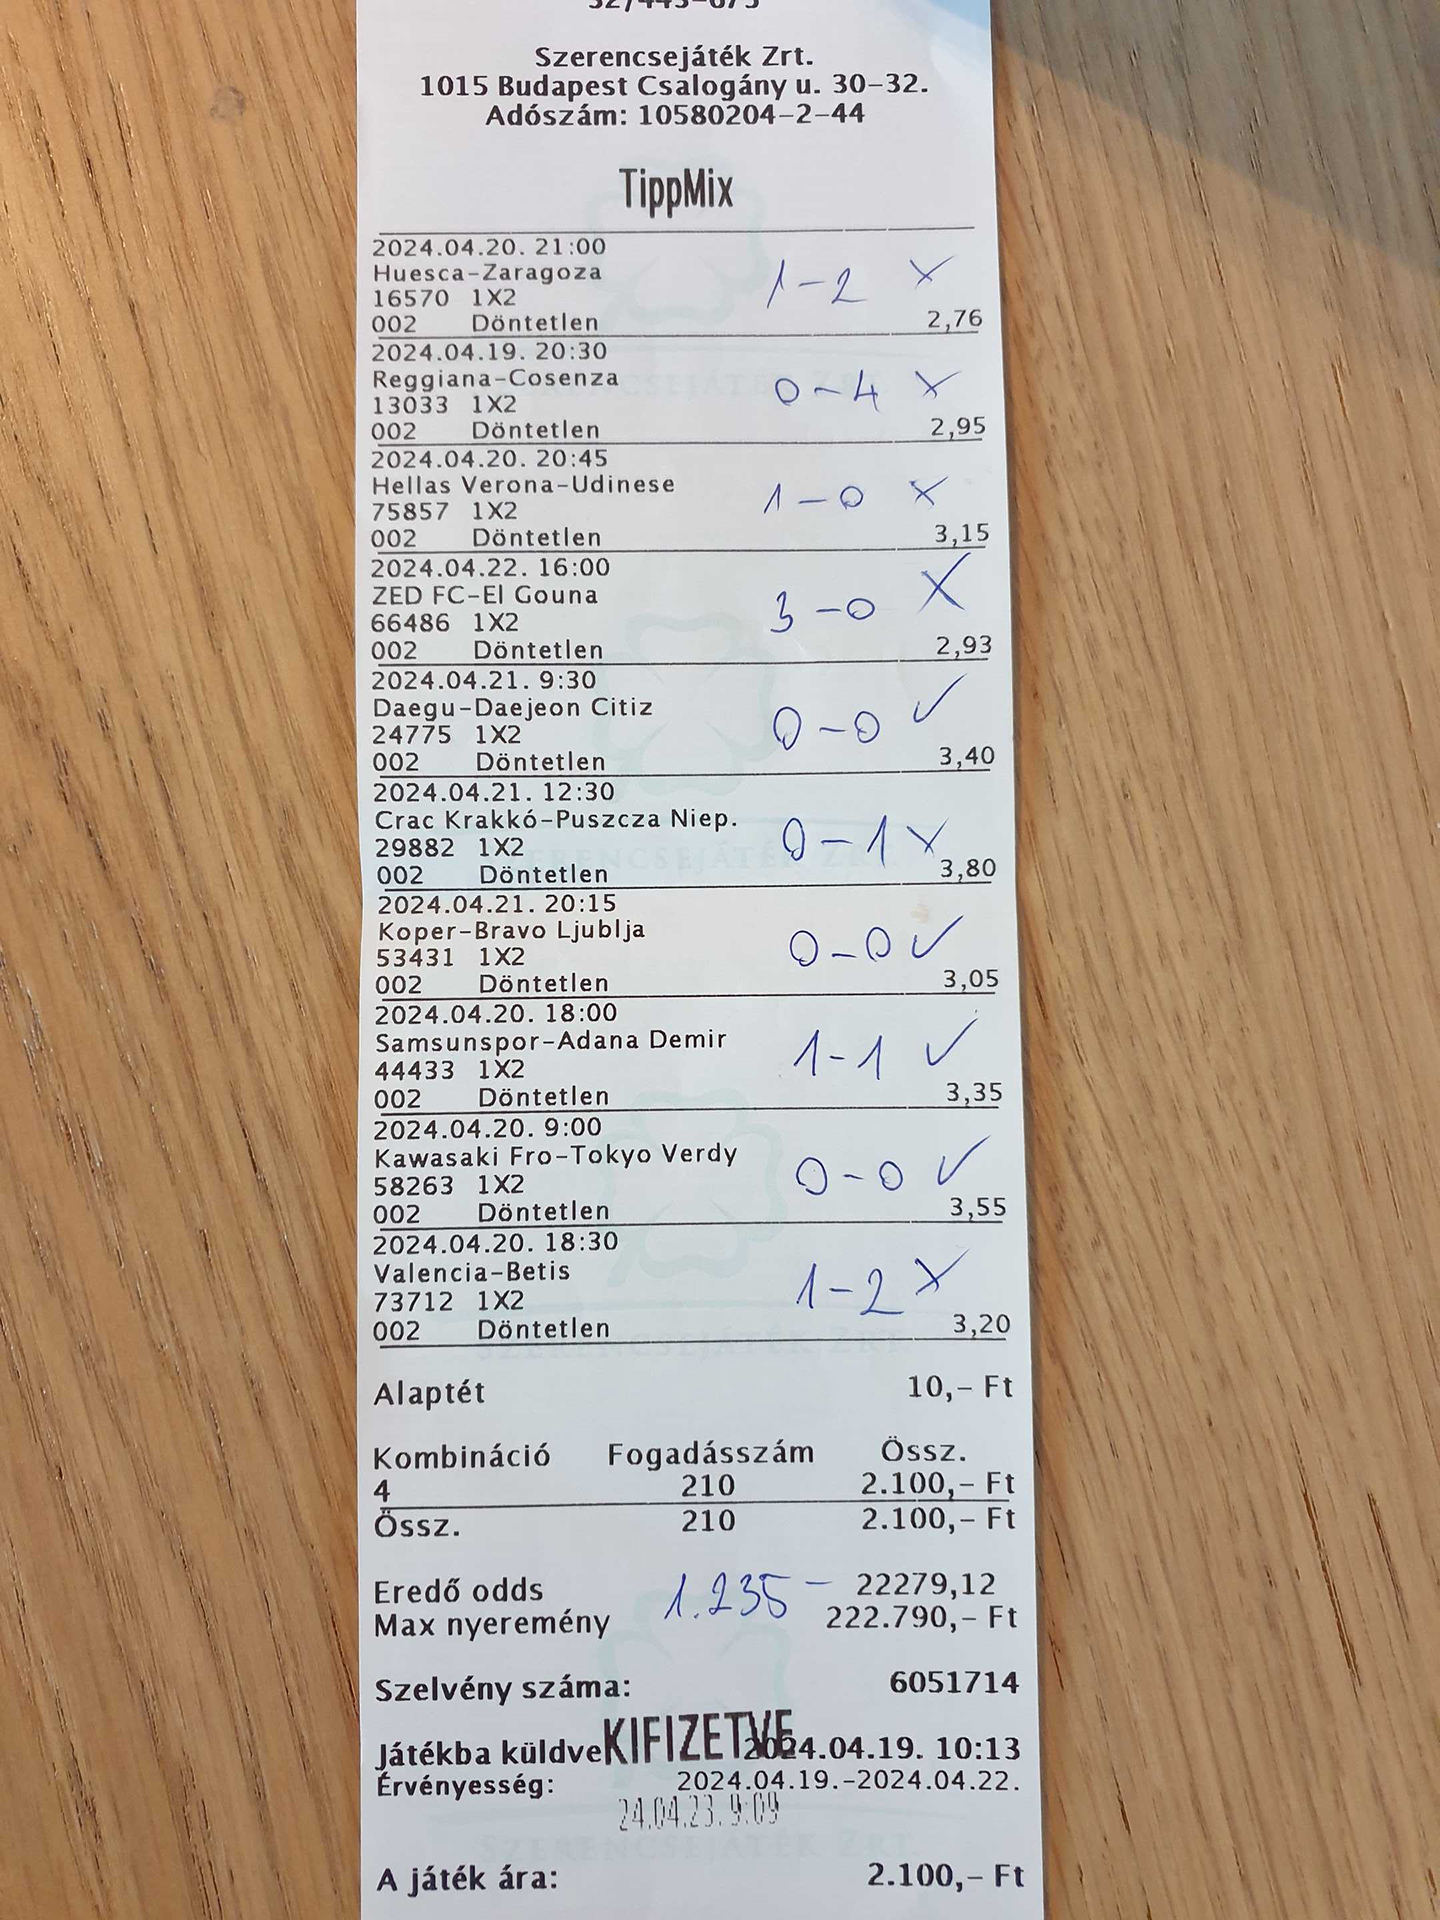 Szerencsejáték Zrt.
1015 Budapest Csalogány u. 30-32.
Adószám: 10580204-2-44
TippMix
2024.04.20. 21:00
Huesca-Zaragoza 1-2 X
16570 1X2
002 Döntetlen 2,76
2024.04.19. 20:30
Reggiana-Cosenza 0-4 X
13033 1X2
002 Döntetlen 2,95
2024.04.20. 20:45
Hellas Verona-Udinese 1-0 X
75857 1X2
002 Döntetlen 3,15
2024.04.22. 16:00
ZED FC-El Gouna 3-0 X
66486 1X2
002 Döntetlen 2,93
2024.04.21. 9:30
Daegu-Daejeon Citiz 0-0 ✓
24775 1X2
002 Döntetlen 3,40
2024.04.21. 12:30
Crac Krakkó-Puszcza Niep. 0-1 X
29882 1X2
002 Döntetlen 3,80
2024.04.21. 20:15
Koper-Bravo Ljublja 0-0 ✓
53431 1X2
002 Döntetlen 3,05
2024.04.20. 18:00
Samsunspor-Adana Demir 1-1 ✓
44433 1X2
002 Döntetlen 3,35
2024.04.20. 9:00
Kawasaki Fro-Tokyo Verdy 0-0 ✓
58263 1X2
002 Döntetlen 3,55
2024.04.20. 18:30
Valencia-Betis 1-2 X
73712 1X2
002 Döntetlen 3,20
Alaptét 10,- Ft
Kombináció Fogadásszám Össz.
4 210 2.100,- Ft
Össz. 210 2.100,- Ft
Eredő odds 1.235- 22279,12
Max nyeremény 222.790,- Ft
Szelvény száma: 6051714
Játékba küldve KIFIZETVE 2024.04.19. 10:13
Érvényesség: 2024.04.19.-2024.04.22.
24.04.23. 9:09
SZERENCSEJÁTÉK ZRT.
A játék ára: 2.100,- Ft